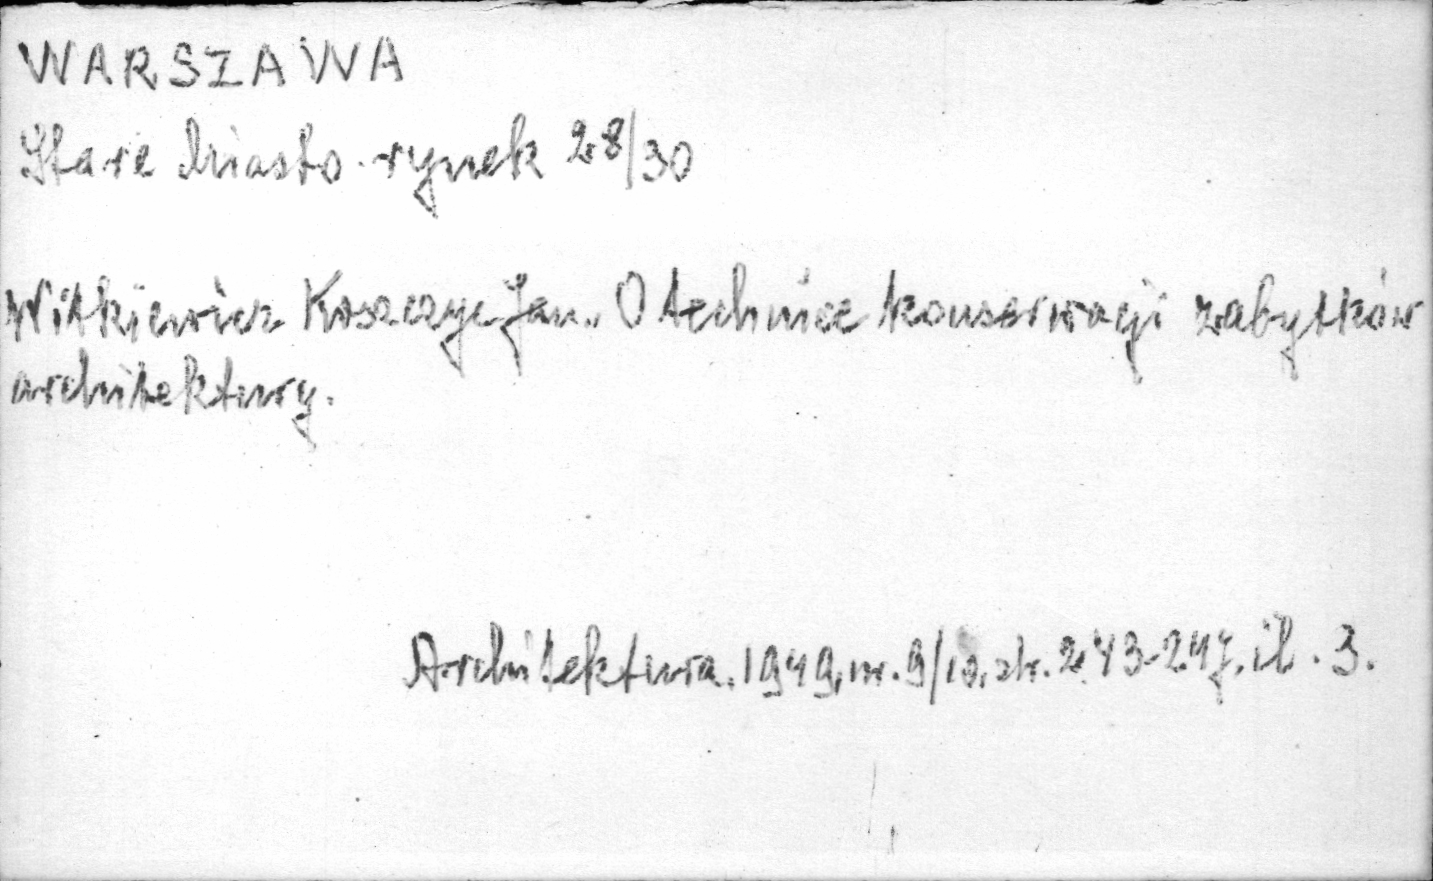 WARSZAWA
Stare Miasto. rynek 28/30
Witkiewicz Koszczyc Jan. O technice konserwacji zabytków
architektury.
Architektura. 1949, nr. 9/10, str. 243-247, il. 3.